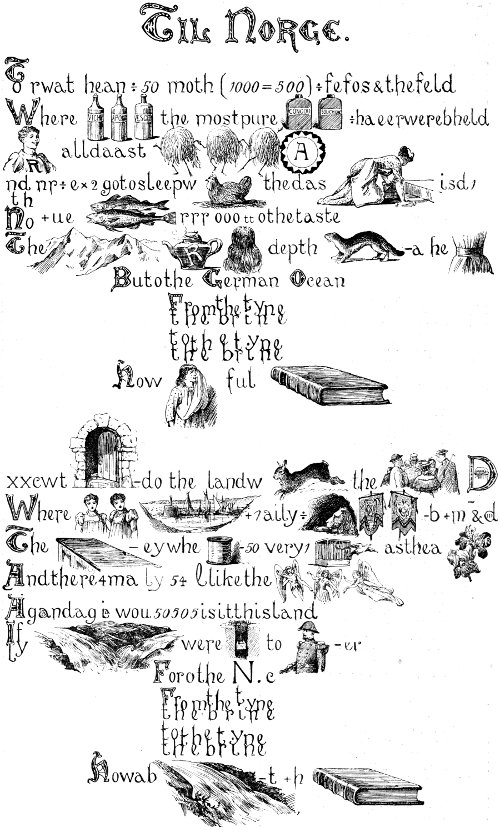 TIL NORGE.
To rwat hean ÷ 50 moth (1000 = 500) ÷ fefos & thefeld
Where the mostpure ÷ haeerwerebheld
R alldaast A
nd, nr ÷ e × 2 gotosleepw thedas isd,
th
No + ue rrr ooo tt othetaste
The R depth - a he
Butothe German Ocean
Fromthetyne
thebrine
tothetyne
thebrine
how ful
xxewt - do the landw the D
Where + 7aily ÷ - b + m & d
The - eywhe - 50 very, asthea
Andthere 4 ma ly 5 ÷ l likethe
Agandagis wou. 50505 isitthisland
If were to - er
ly
Forothe N. e
Fromthetyne
thebrine
tothetyne
thebrine
howab - t + h